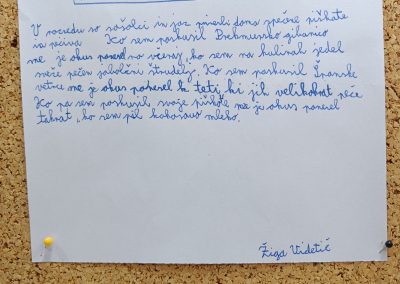 V razredu so sošolci in jaz prinesli doma spečene piškote
in peciva. Ko sem poskusil Prekmursko gibanico
me je okus ponesel na včeraj, ko sem na kulinat jedel
sveže pečen jabolčni štrudelj. Ko sem poskusil Španske
vetrce me je okus ponesel k teti, ki jih velikokrat peče
Ko pa sem poskusil, svoje piškote me je okus ponesel
takrat, ko sem pil kokosovo mleko.
Žiga Videtič